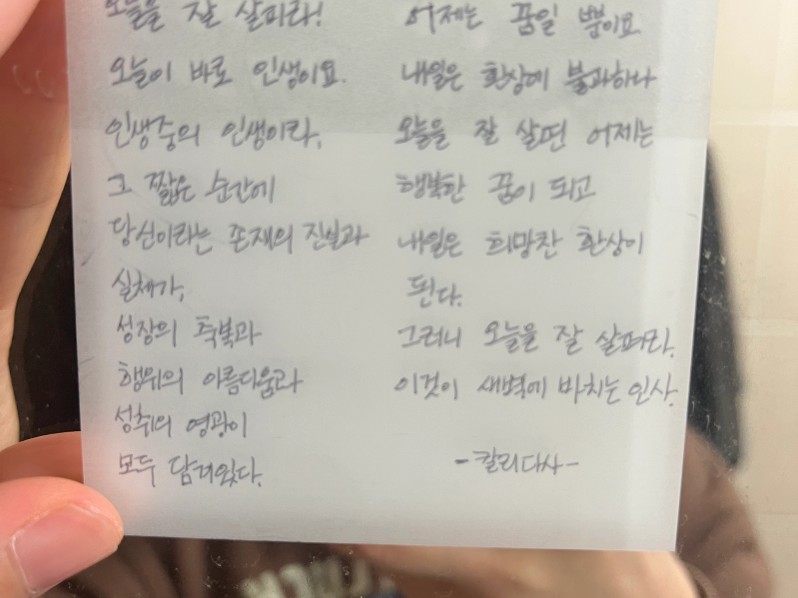 오늘을 잘 살펴라!
오늘이 바로 인생이요.
인생중의 인생이라.
그 짧은 순간에
당신이라는 존재의 진실과
실체가,
성장의 축복과
행위의 아름다움과
성취의 영광이
모두 담겨있다.
어제는 꿈일 뿐이요
내일은 환상에 불과하나
오늘을 잘 살면 어제는
행복한 꿈이 되고
내일은 희망찬 환상이
된다.
그러니 오늘을 잘 살펴라.
이것이 새벽에 바치는 인사.
-칼리다사-